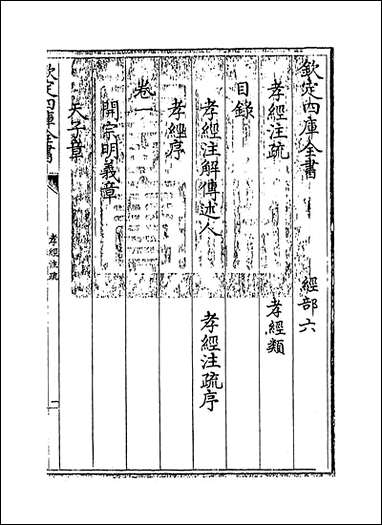 欽定四庫全書 經部六
孝經注疏 孝經類
目錄
孝經注解傳述人 孝經注疏序
孝經序
卷一
開宗明義章
天子章
欽定四庫全書 孝經注疏 一